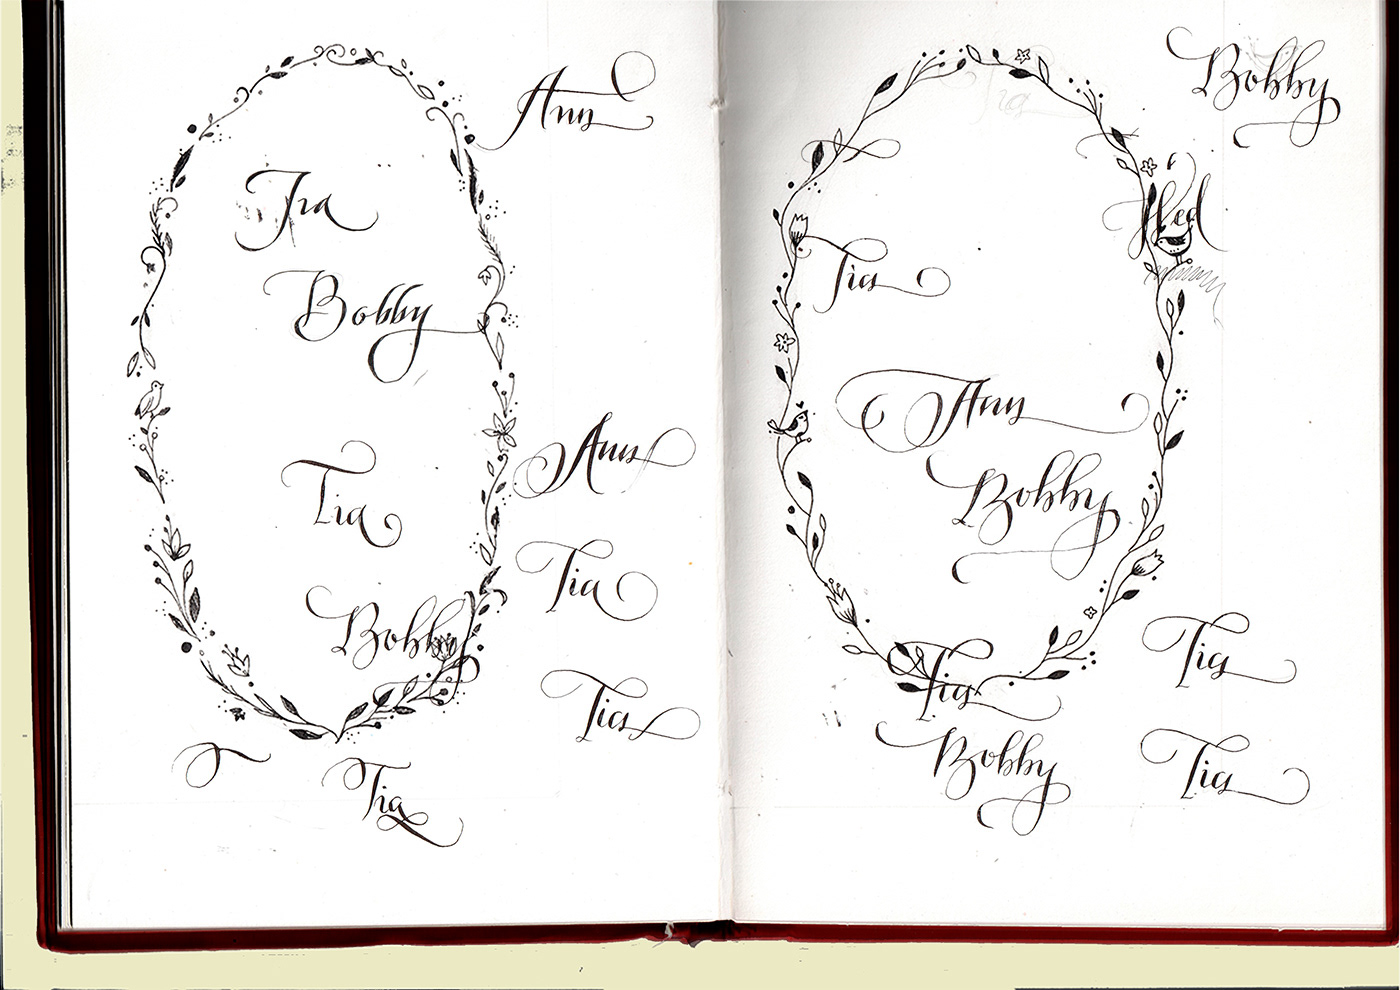 Ann
Tia
Bobby
Tia
Ann
Tia
Bobby
Tia
Tia
Bobby
Tia
Ann
Bobby
Tia
Tia
Bobby
Tia